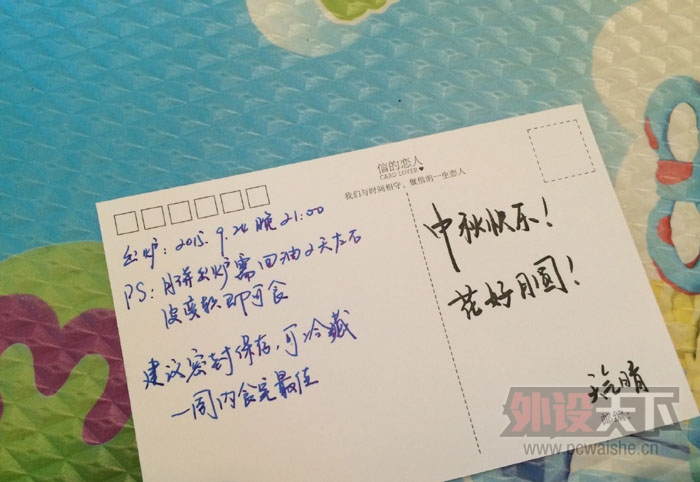 信的恋人
CARD LOVER
我们与时间相守，做信的一生恋人
出炉：2015.9.24晚21:00
PS：月饼出炉需回油2天左右
皮变软即可食
建议密封保存，可冷藏
一周内食完最佳
中秋快乐！
花好月圆！
外设天下
www.pcwaishe.cn